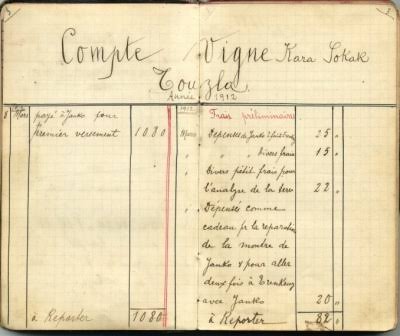 3 3
Compte Vigne Kara Sokak
Touzla
Année 1912
8 Mars payé à Janko pour
premier versement 1080
à Reporter 1080
1912 Frais préliminaires
Mars Depenses de Janko 25 "
" " " Divers frais 15 "
" Divers petit frais pour
l'analyse de la terre 22 "
" Dépensés comme
cadeau pr la reparation
de la montre de
Janko & pour aller
deux fois à
avec Janko 20 "
à Reporter 82 "